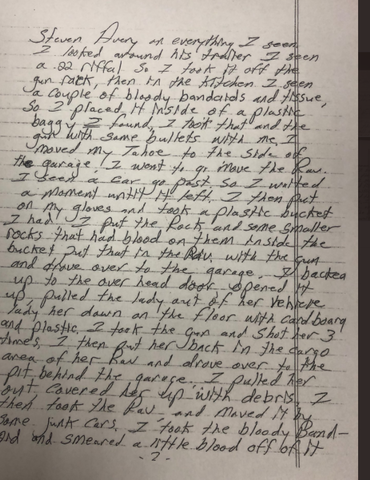 Steven Avery on everything I seen.
I looked around his trailer I seen
a .22 riffal So I took it off the
gun rack, then in the kitchen I seen
a couple of bloody bandaids and tissue,
So I placed it inside of a plastic
baggy I found, I took that and the
gun with some bullets with me I
moved my Tahoe to the side of
the garage. I went to go move the Rav.
I seen a car go past So I waited
a moment until it left. I then put
on my gloves and took a plastic bucket
I had I put the Rock, and some smaller
rocks that had blood on them inside the
bucket put that in the Rav, with the gun
and drove over to the garage. I backed
up to the over head door opened it
up, pulled the lady out of her vehicle
lady her down on the floor with cardboard
and plastic. I took the gun and shot her 3
times, I then put her back in the cargo
area of her Rav and drove over to the
pit behind the garage. I pulled her
out covered her up with debris. I
then took the Rav and moved it by
some junk cars. I took the bloody Band-
aid and smeared a little blood off of it
-2-